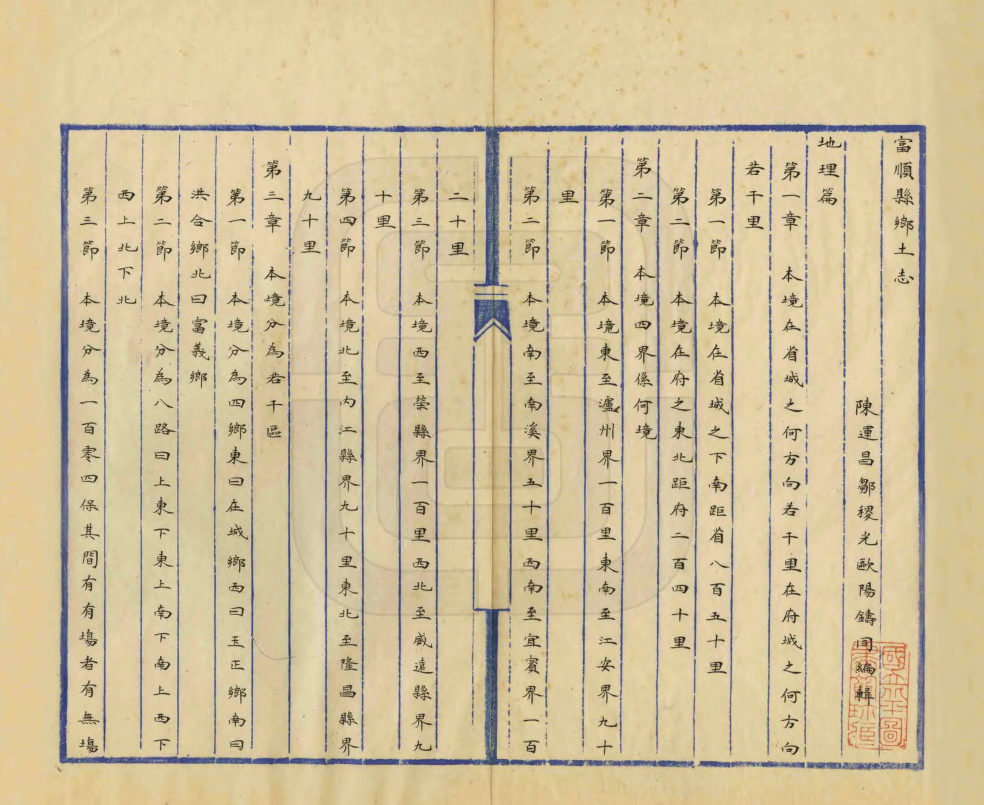 富順縣鄉土志
陳運昌鄒稷光歐陽鑄同編輯
地理篇
第一章　本境在省城之何方向若干里在府城之何方向
若干里
第一節　本境在省城之下南距省八百五十里
第二節　本境在府之東北距府二百四十里
第二章　本境四界係何境
第一節　本境東至瀘州界一百里東南至江安界九十
里
第二節　本境南至南溪界五十里西南至宜賓界一百
二十里
第三節　本境西至榮縣界一百里西北至威遠縣界九
十里
第四節　本境北至內江縣界九十里東北至隆昌縣界
九十里
第三章　本境分為若干區
第一節　本境分為四鄉東曰在城鄉西曰玉正鄉南曰
洪合鄉北曰富義鄉
第二節　本境分為八路曰上東下東上南下南上西下
西上北下北
第三節　本境分為一百零四保其間有有塲者有無塲